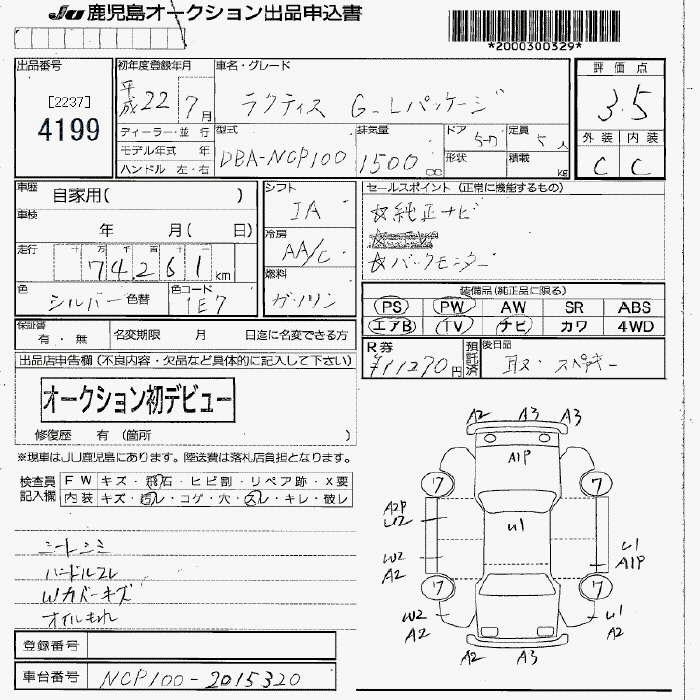 JU 鹿児島オークション出品申込書
*2000300329*
出品番号
[2237]
4199
初年度登録年月
平成 22 7月
車名・グレード
ラクティス G_Lパッケージ
評価点
3.5
外装 内装
C C
ディーラー・並行
モデル年式 年
ハンドル 左・右
型式
DBA-NCP100
排気量
1500 cc
ドア
5-D
定員
5人
形状
積載
kg
車歴
自家用( )
車検
年 月( 日)
走行
十 万 千 百 十 一
74261 km
色
シルバー
色替
色コード
1E7
シフト
IA
冷房
AA/C
燃料
ガソリン
セールスポイント (正常に機能するもの)
☆純正ナビ
☆バックモニター
装備品(純正品に限る)
PS PW AW SR ABS
エアB TV ナビ カワ 4WD
保証書
有・無
名変期限 月 日迄に名変できる方
R券
¥11270円
預託済
後日品
取・スペアキー
出品店申告欄 (不良内容・欠品など具体的に記入して下さい)
オークション初デビュー
修復歴 有 (箇所 )
※現車はJU鹿児島にあります。陸送費は落札店負担となります。
検査員
記入欄
FW キズ・飛石・ヒビ割・リペア跡・X要
内装 キズ・汚レ・コゲ・穴・スレ・キレ・破レ
シートシミ
ハンドルスレ
Wカバーキズ
オイルもれ
登録番号
車台番号 NCP100-2015320
A2 A3 A3
A1P
ワ ワ
A2P
U2
U1
W2
A2
U1
A1P
ワ ワ
W2
A2
U1
A2
A2 A3 A2